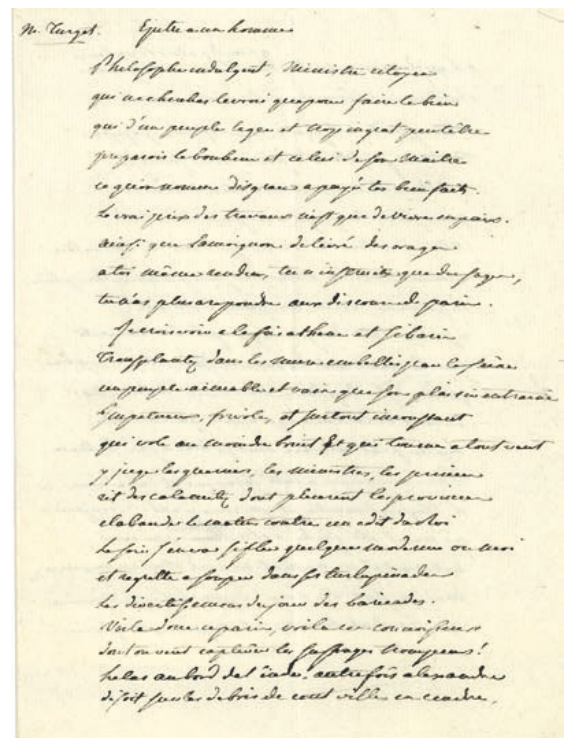 M. Turgot. Epitre a un homme
Philosophe indulgent, Ministre citoyen
qui ne cherchas le vrai que pour faire le bien
qui d'un peuple leger et trop ingrat peut etre
preparois le bonheur et celui de son maitre
ce qu'on nomme disgrace a payé tes bienfaits.
Le vrai prix des travaux n'est que de vivre en paix.
ainsi que Lamoignon delivré des orages
a toi même rendu, tu n'instruits que des sages,
tu n'as plus a repondre aux discours de paris.
Je crois voir a la fois athene et sibaris
transplantez dans les murs embellis par la seine
un peuple aimable et vain que son plaisir entraine
Impetueux, frivole, et surtout inconstant
qui vole au moindre bruit et qui tourne a tout vent
y juge les guerriers, les ministres, les princes
rit des calamitez dont pleurent les provinces
clabaude le matin contre un edit du Roi
le soir s'en va siffler quelque moderne ou moi
et regrette a souper dans ses turlupinades
les divertissemens du jour des baricades.
Voila donc ce paris, voila ces connoisseurs
dont on veut captiver les suffrages trompeurs!
helas au bord de l'inde autrefois alexandre
disoit sur les debris de cent villes en cendre,